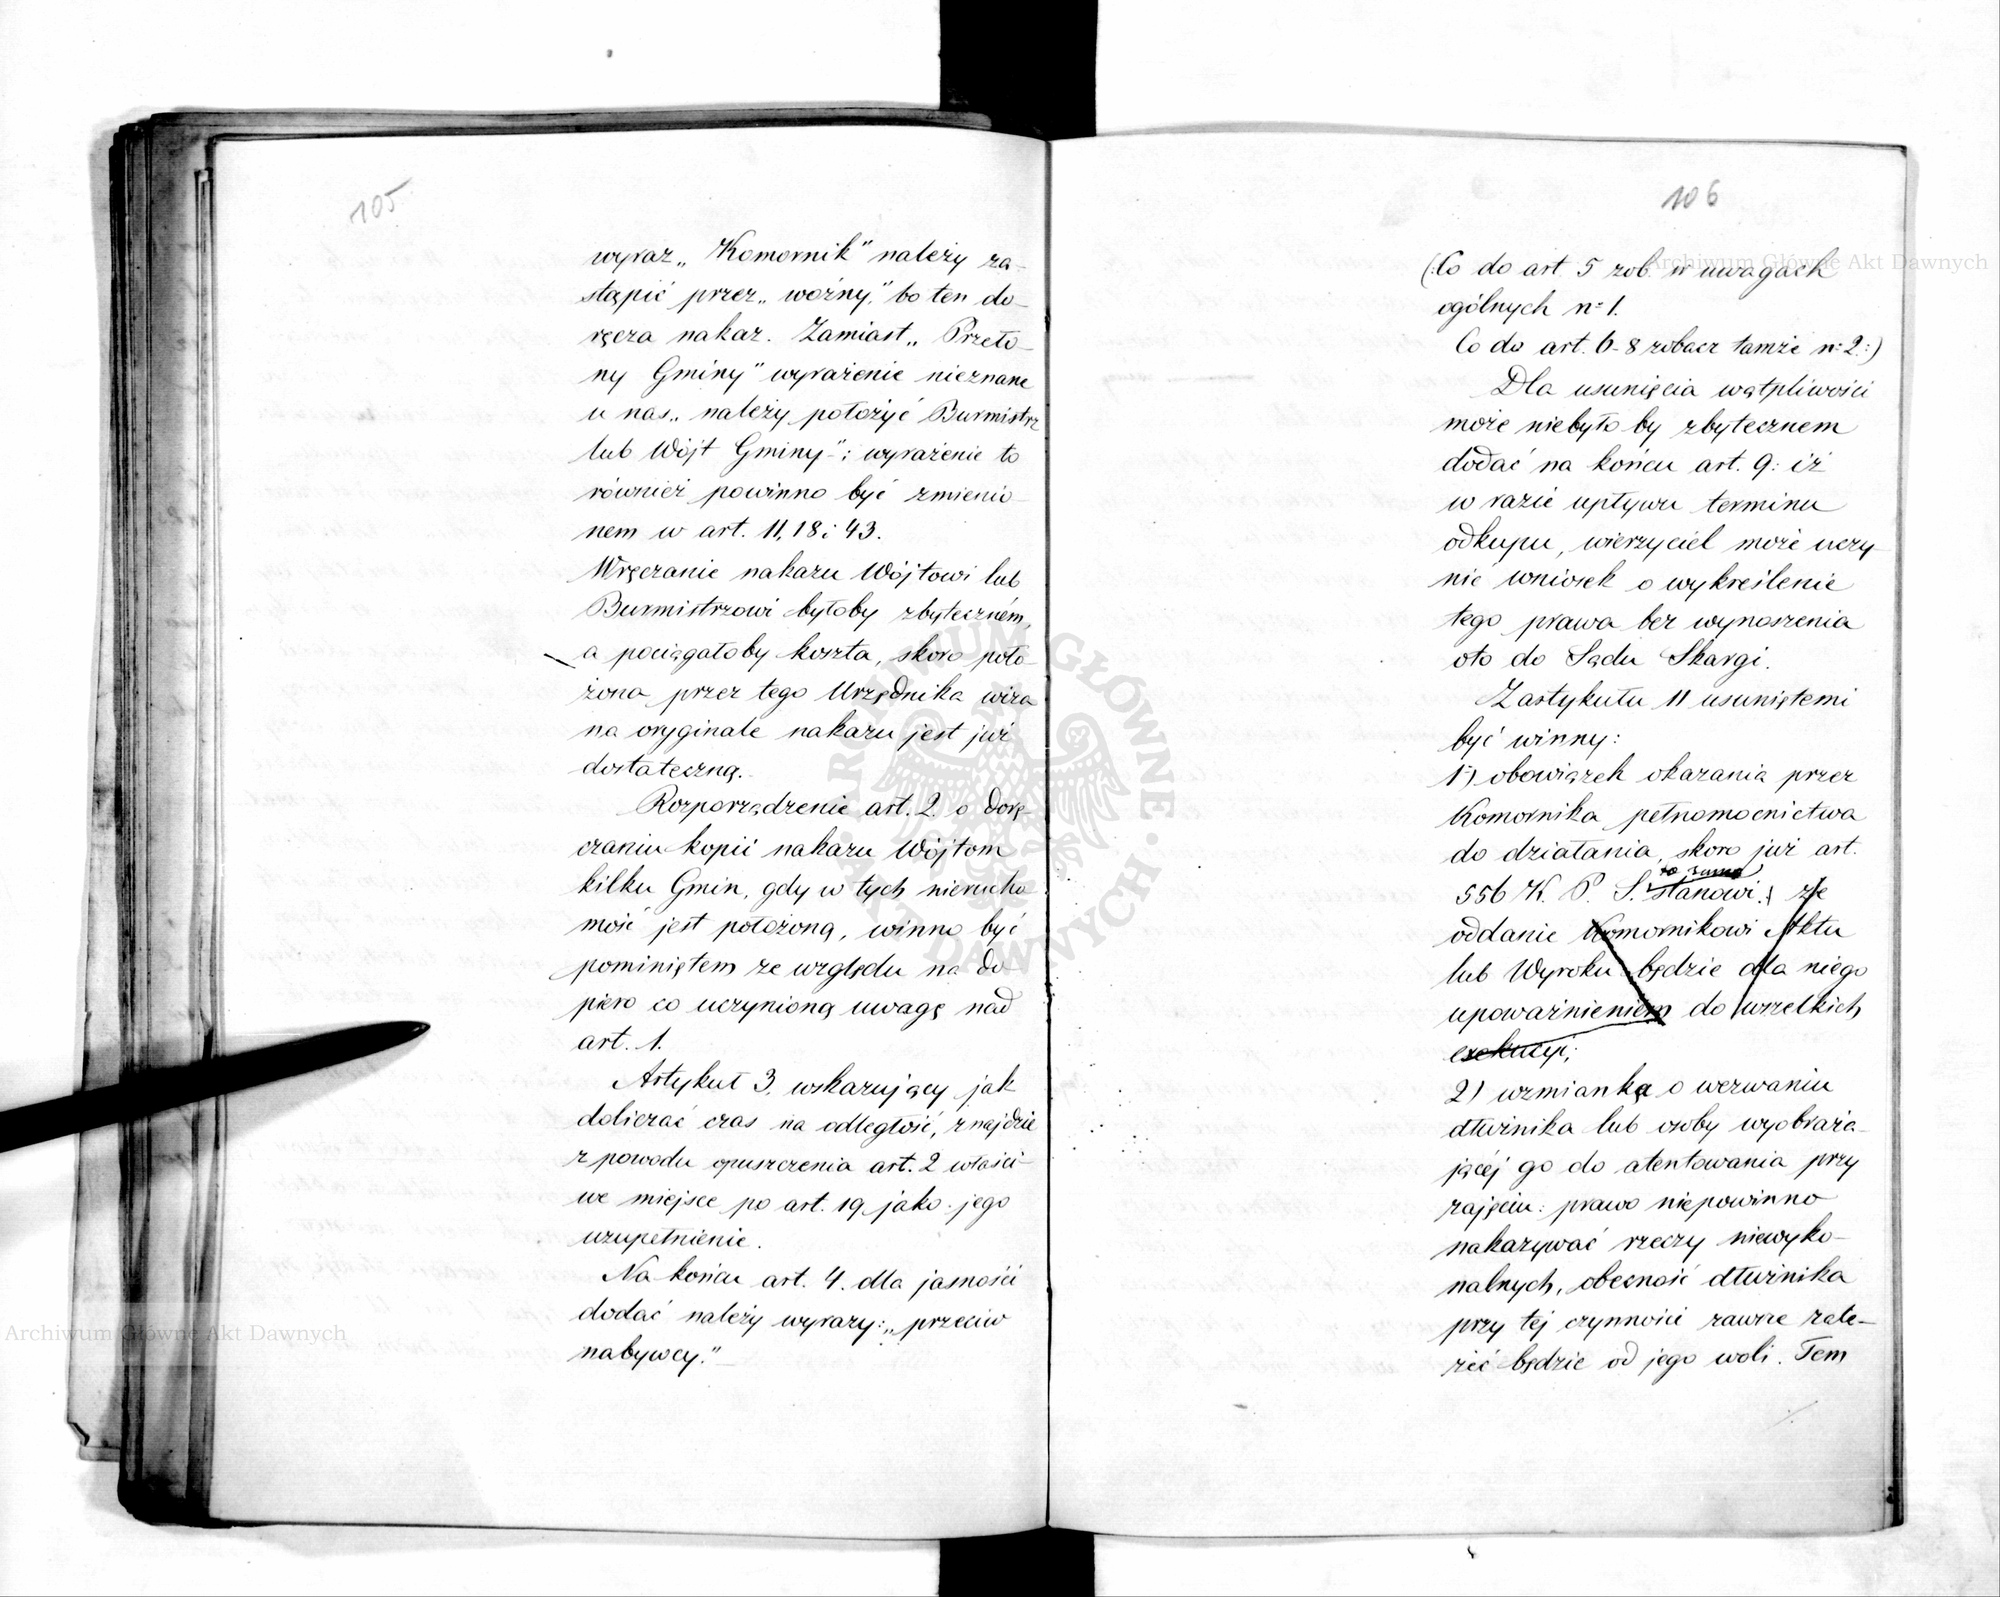 105
wyraz „Komornik” należy za-
stąpić przez „woźny,” bo ten do-
ręcza nakaz. Zamiast „Przeło-
ny Gminy” wyrażenie nieznane
u nas „należy położyć Burmistrz
lub Wójt Gminy”; wyrażenie to
również powinno być zmienio-
nem w art. 11, 18 i 43.
Wręczanie nakazu Wójtowi lub
Burmistrzowi byłoby zbyteczném,
a pociągałoby koszta, skoro poło-
żona przez tego Urzędnika wiza
na oryginale nakazu jest już
dostateczną.
Rozporządzenie art. 2. o dorę-
czaniu kopii nakazu Wójtom
kilku Gmin, gdy w tych nierucho
mość jest położoną, winno być
pominiętem ze względu na do-
piero co uczynioną uwagę nad
art. 1.
Artykuł 3, wskazujący jak
doliczać czas na odległość, znajdzie
z powodu opuszczenia art. 2 właści-
we miejsce po art. 19 jako jego
uzupełnienie.
Na końcu art. 4. dla jasności
dodać należy wyrazy: „przeciw
nabywcy.”
106
(:Co do art 5 zob. w uwagach
ogólnych n° 1.
Co do art. 6-8 zobacz tamże n° 2:)
Dla usunięcia wątpliwości
może niebyło by zbytecznem
dodać na końcu art. 9: iż
w razie upływu terminu
odkupu, wierzyciel może uczy
nić wniosek o wykreślenie
tego prawa bez wynoszenia
oto do Sądu Skargi.
Z artykułu 11 usuniętemi
być winny:
1°) obowiązek okazania przez
Komornika pełnomocnictwa
do działania, skoro już art.
to samo
556 K. P. S. stanowi; że
oddanie Komornikowi Aktu
lub Wyroku będzie dla niego
upoważnieniem do wszelkich
exekucyi;
2) wzmianka o wezwaniu
dłużnika lub osoby wyobraża-
jącéj go do atentowania przy
zajęciu: prawo niepowinno
nakazywać rzeczy niewyko-
nalnych, obecność dłużnika
przy téj czynności zawsze zale-
żeć będzie od jego woli. Tem
Archiwum Główne Akt Dawnych
Archiwum Główne Akt Dawnych
ARCHIWUM GŁÓWNE AKT DAWNYCH